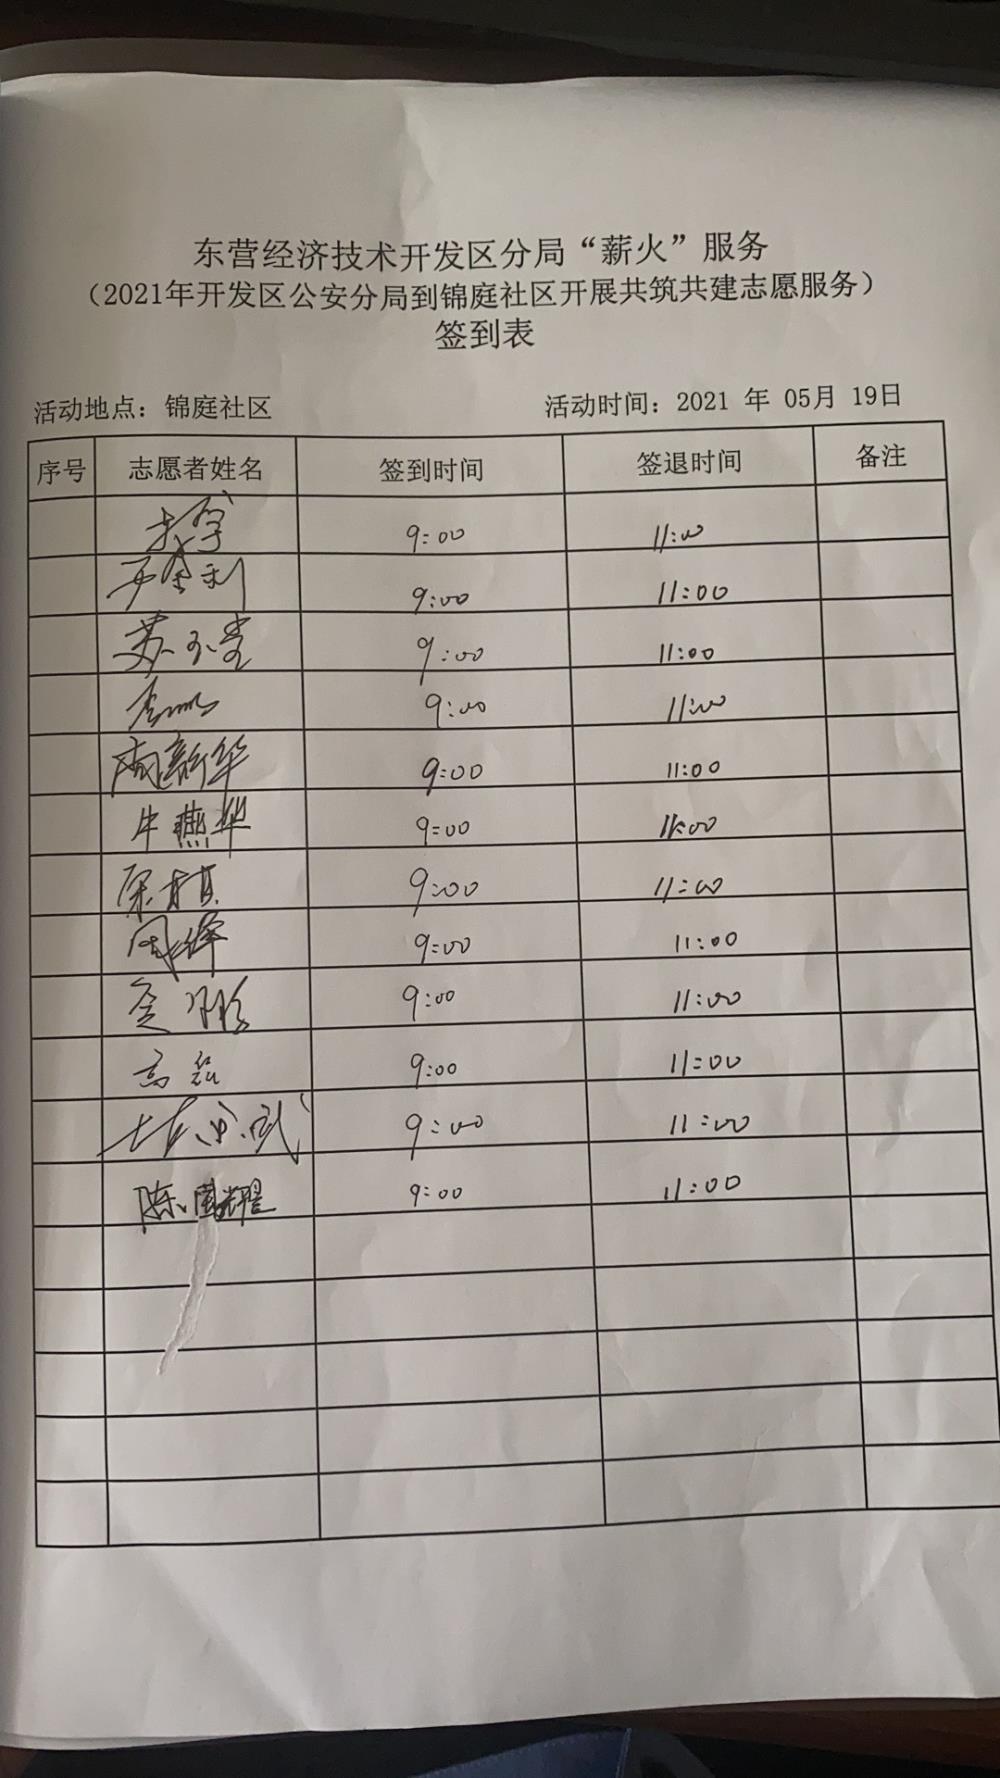 东营经济技术开发区分局“薪火”服务
（2021年开发区公安分局到锦庭社区开展共筑共建志愿服务）
签到表
活动地点：锦庭社区 活动时间：2021 年 05月 19日
序号 志愿者姓名 签到时间 签退时间 备注
9:00 11:00
9:00 11:00
苏玉贵 9:00 11:00
9:00 11:00
周新华 9:00 11:00
牛燕华 9:00 11:00
9:00 11:00
周峰 9:00 11:00
9:00 11:00
高磊 9:00 11:00
9:00 11:00
陈国耀 9:00 11:00